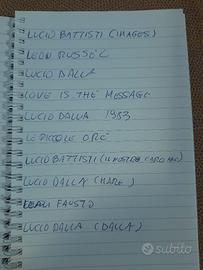 LUCIO BATTISTI (IMAGES)
LEON RUSSEL
LUCIO DALLA
LOVE IS THE MESSAGE
LUCIO DALLA 1983
LE PICCOLE ORE
LUCIO BATTISTI (IL NOSTRO CARO
LUCIO DALLA (MARE)
LEALI FAUSTO
LUCIO DALLA (DALLA)
subito